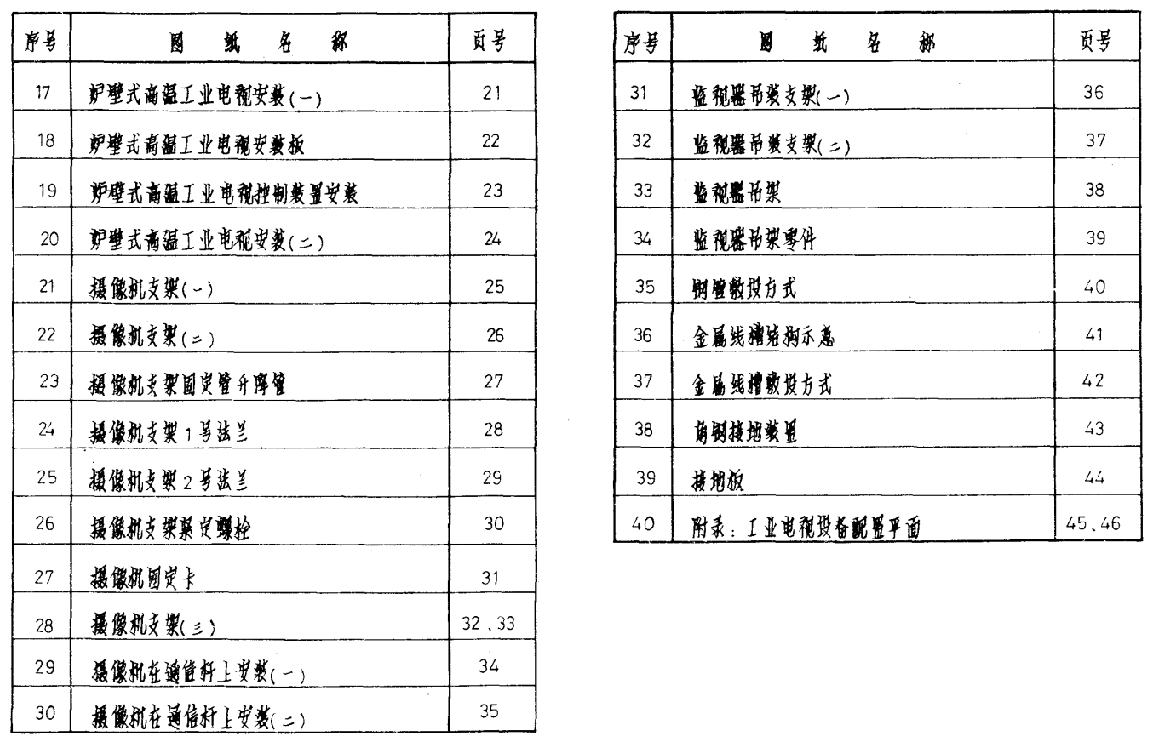 序号 图纸名称 页号
17 炉壁式高温工业电视安装(一) 21
18 炉壁式高温工业电视安装板 22
19 炉壁式高温工业电视控制装置安装 23
20 炉壁式高温工业电视安装(二) 24
21 摄像机支架(一) 25
22 摄像机支架(二) 26
23 摄像机支架固定管升降管 27
24 摄像机支架1号法兰 28
25 摄像机支架2号法兰 29
26 摄像机支架紧定螺栓 30
27 摄像机固定卡 31
28 摄像机支架(三) 32、33
29 摄像机在通信杆上安装(一) 34
30 摄像机在通信杆上安装(二) 35
序号 图纸名称 页号
31 监视器吊装支架(一) 36
32 监视器吊装支架(二) 37
33 监视器吊架 38
34 监视器吊架零件 39
35 钢管敷设方式 40
36 金属线槽结构示意 41
37 金属线槽敷设方式 42
38 角钢接地装置 43
39 接地板 44
40 附录：工业电视设备配置平面 45、46